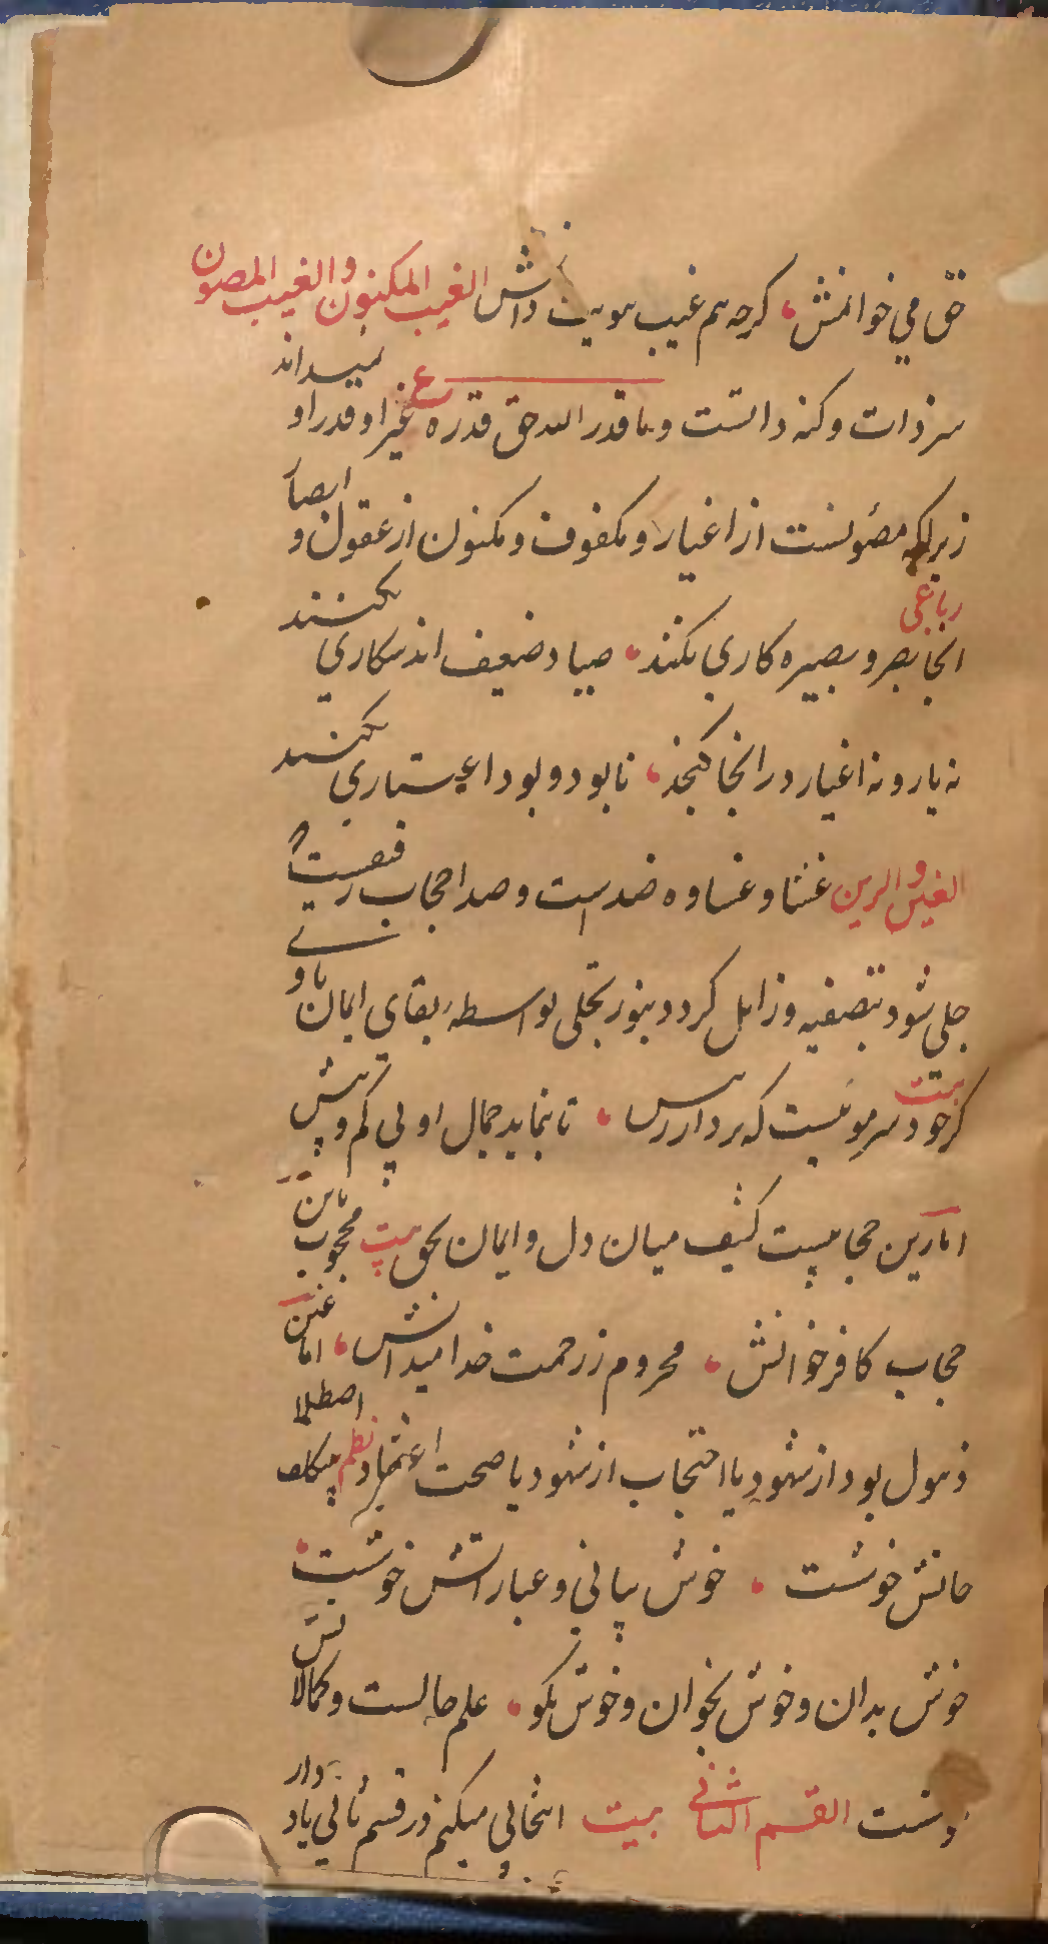 حق می خوانمش گرچه هم غیب هویت دانش الغیب المکنون والغیب المصون
سر ذات و کنه ذاتست و ما قدر الله حق قدره ع غیر او قدر او نمیداند
زیراکه مصونست از اغیار و مکفوف و مکنون از عقول و ابصار
رباعی
انجا بصر و بصیره کاری نکنند صیاد ضعیف اند شکاری نکنند
نه یار و نه اغیار در انجا گنجد نابود و بود اعتباری نکنند
الغین والرین غشا و غشاوه ضد است و صدا حجاب رقیقیست که
جلی شود بتصفیه و زایل گردد بنور تجلی بواسطه بقای ایمان باوی
بیت
گرچه سر مو نیست که بردار ز پیش تا بنماید جمال او بی کم و بیش
اما رین حجابیست کثیف میان دل و ایمان بحق بیت محجوب باین
حجاب کافر خوانش محروم ز رحمت خدا میدانش اما غین
ذهول بود از شهود یا احتجاب از شهود با صحت اعتقاد نظم میکلف اصطلا
حاتش خوشست خوش بیانی و عباراتش خوشست
خوش بدان و خوش بخوان و خوش بگو علم حالست و کمالاتش
خوشست القسم الثانی بیت انتخابی میکنم در قسم ثانی یاد دار